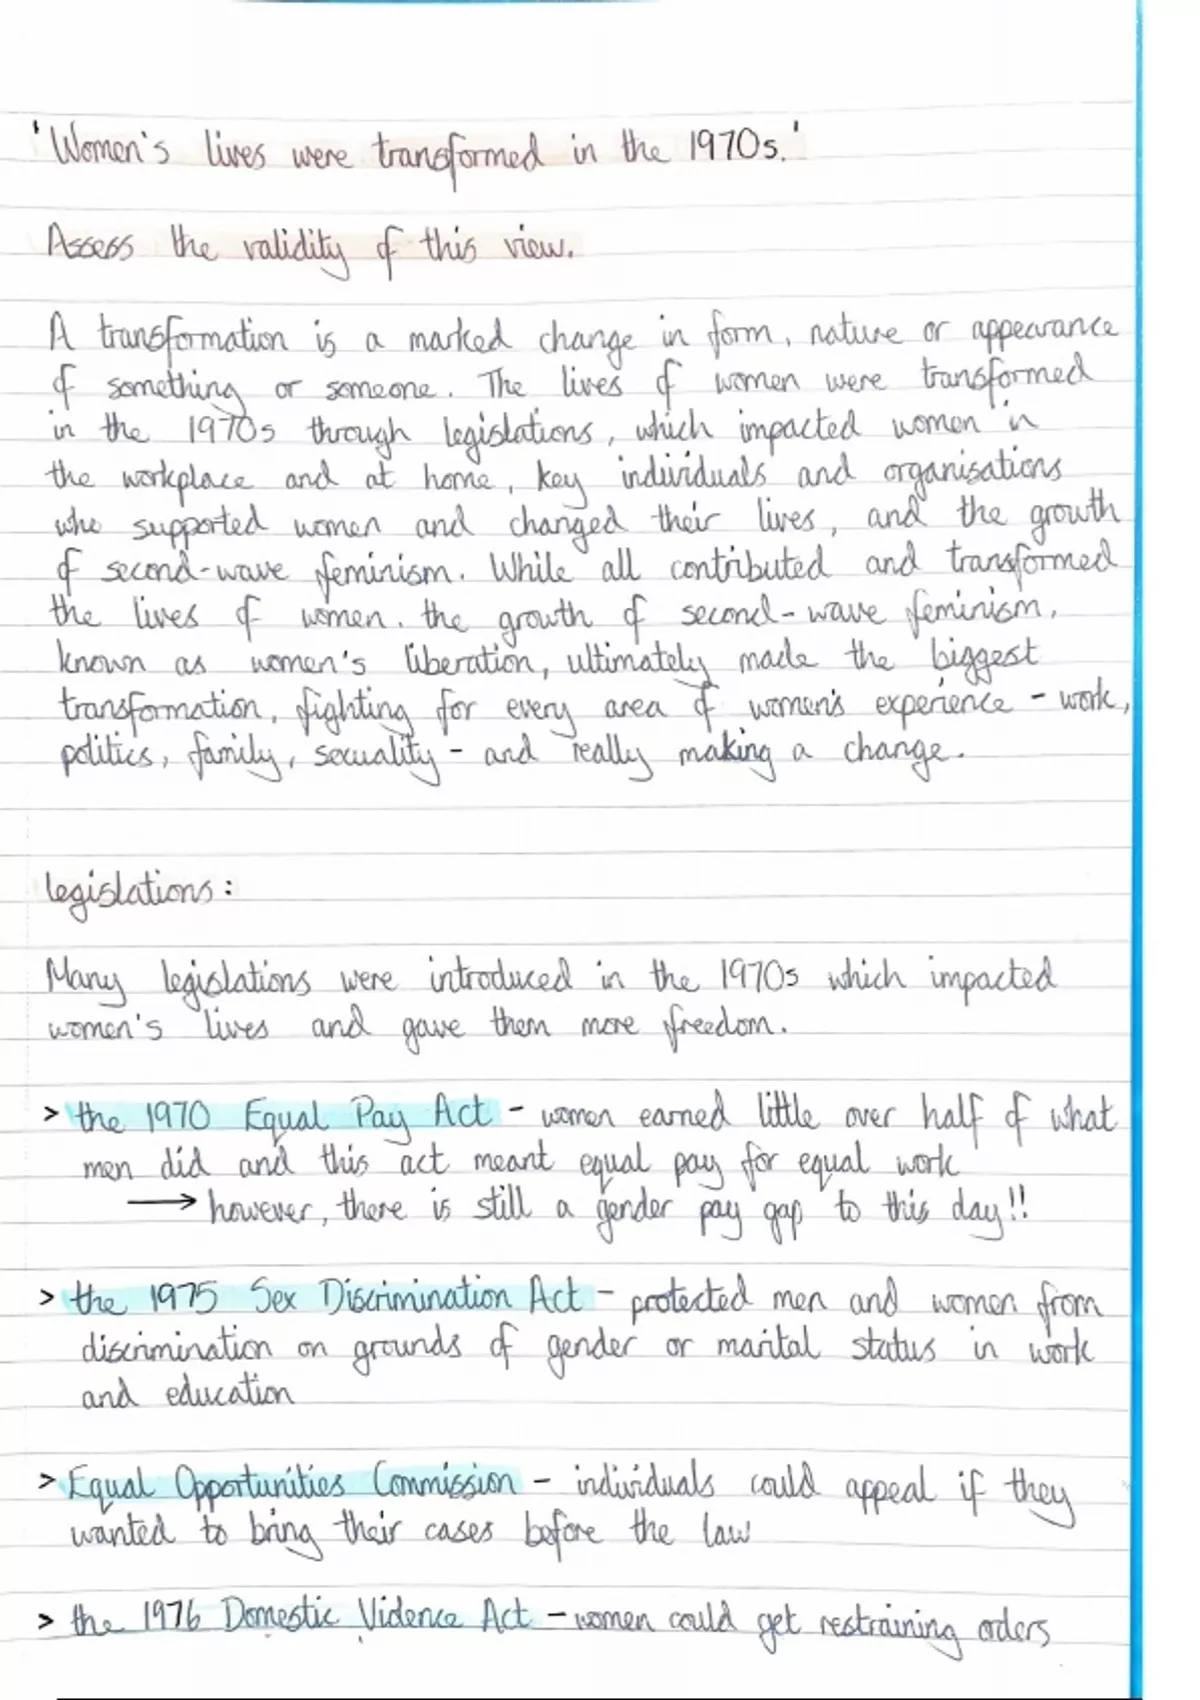 'Women's lives were transformed in the 1970s.'
Assess the validity of this view.
A transformation is a marked change in form, nature or appearance
of something or someone. The lives of women were transformed
in the 1970s through legislations, which impacted women in
the workplace and at home, key individuals and organisations
who supported women and changed their lives, and the growth
of second-wave feminism. While all contributed and transformed
the lives of women, the growth of second-wave feminism,
known as women's liberation, ultimately made the biggest
transformation, fighting for every area of women's experience - work,
politics, family, sexuality - and really making a change.
legislations:
Many legislations were introduced in the 1970s which impacted
women's lives and gave them more freedom.
> the 1970 Equal Pay Act - women earned little over half of what
men did and this act meant equal pay for equal work
→ however, there is still a gender pay gap to this day!!
> the 1975 Sex Discrimination Act - protected men and women from
discrimination on grounds of gender or marital status in work
and education
> Equal Opportunities Commission - individuals could appeal if they
wanted to bring their cases before the law
> the 1976 Domestic Violence Act - women could get restraining orders